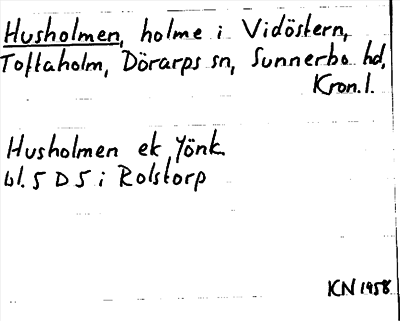 Husholmen, holme i Vidöstern,
Toftaholm, Dörarps sn, Sunnerbo hd,
Kron. l.
Husholmen ek Jönk.
bl. 5 D 5 i Rolstorp
KN 1958